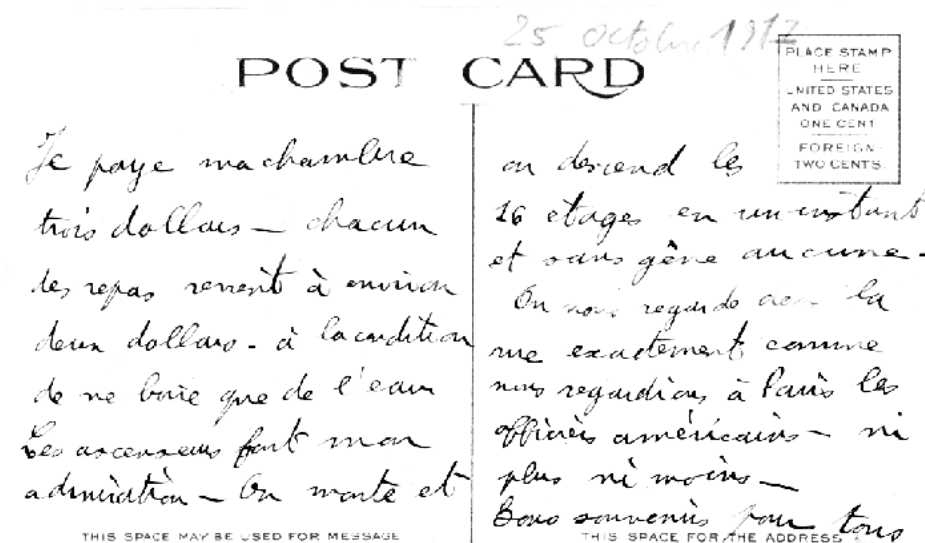 25 Octobre 1917
POST CARD
PLACE STAMP
HERE
UNITED STATES
AND CANADA
ONE CENT
FOREIGN
TWO CENTS
Je paye ma chambre
trois dollars — chacun
des repas revient à environ
deux dollars - à la condition
de ne boire que de l'eau
Les ascenseurs font mon
admiration — On monte et
THIS SPACE MAY BE USED FOR MESSAGE
on descend les
16 etages en un instant
et sans gêne aucune -
On nous regarde dans la
rue exactement comme
nous regardions à Paris les
officiers américains — ni
plus ni moins —
Bons souvenirs pour tous
THIS SPACE FOR THE ADDRESS